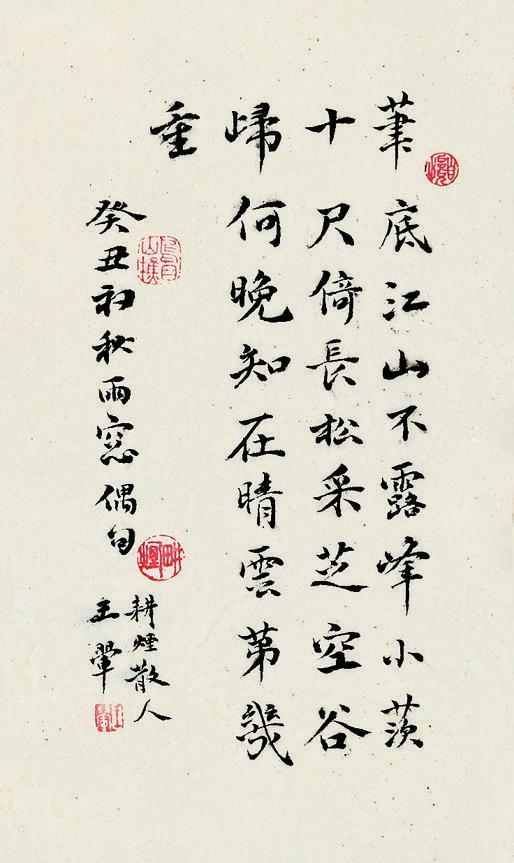 筆底江山不露峰小茨
十尺倚長松采芝空谷
歸何晚知在晴雲第幾
重
癸丑初秋雨窓偶句
耕煙散人
王翬